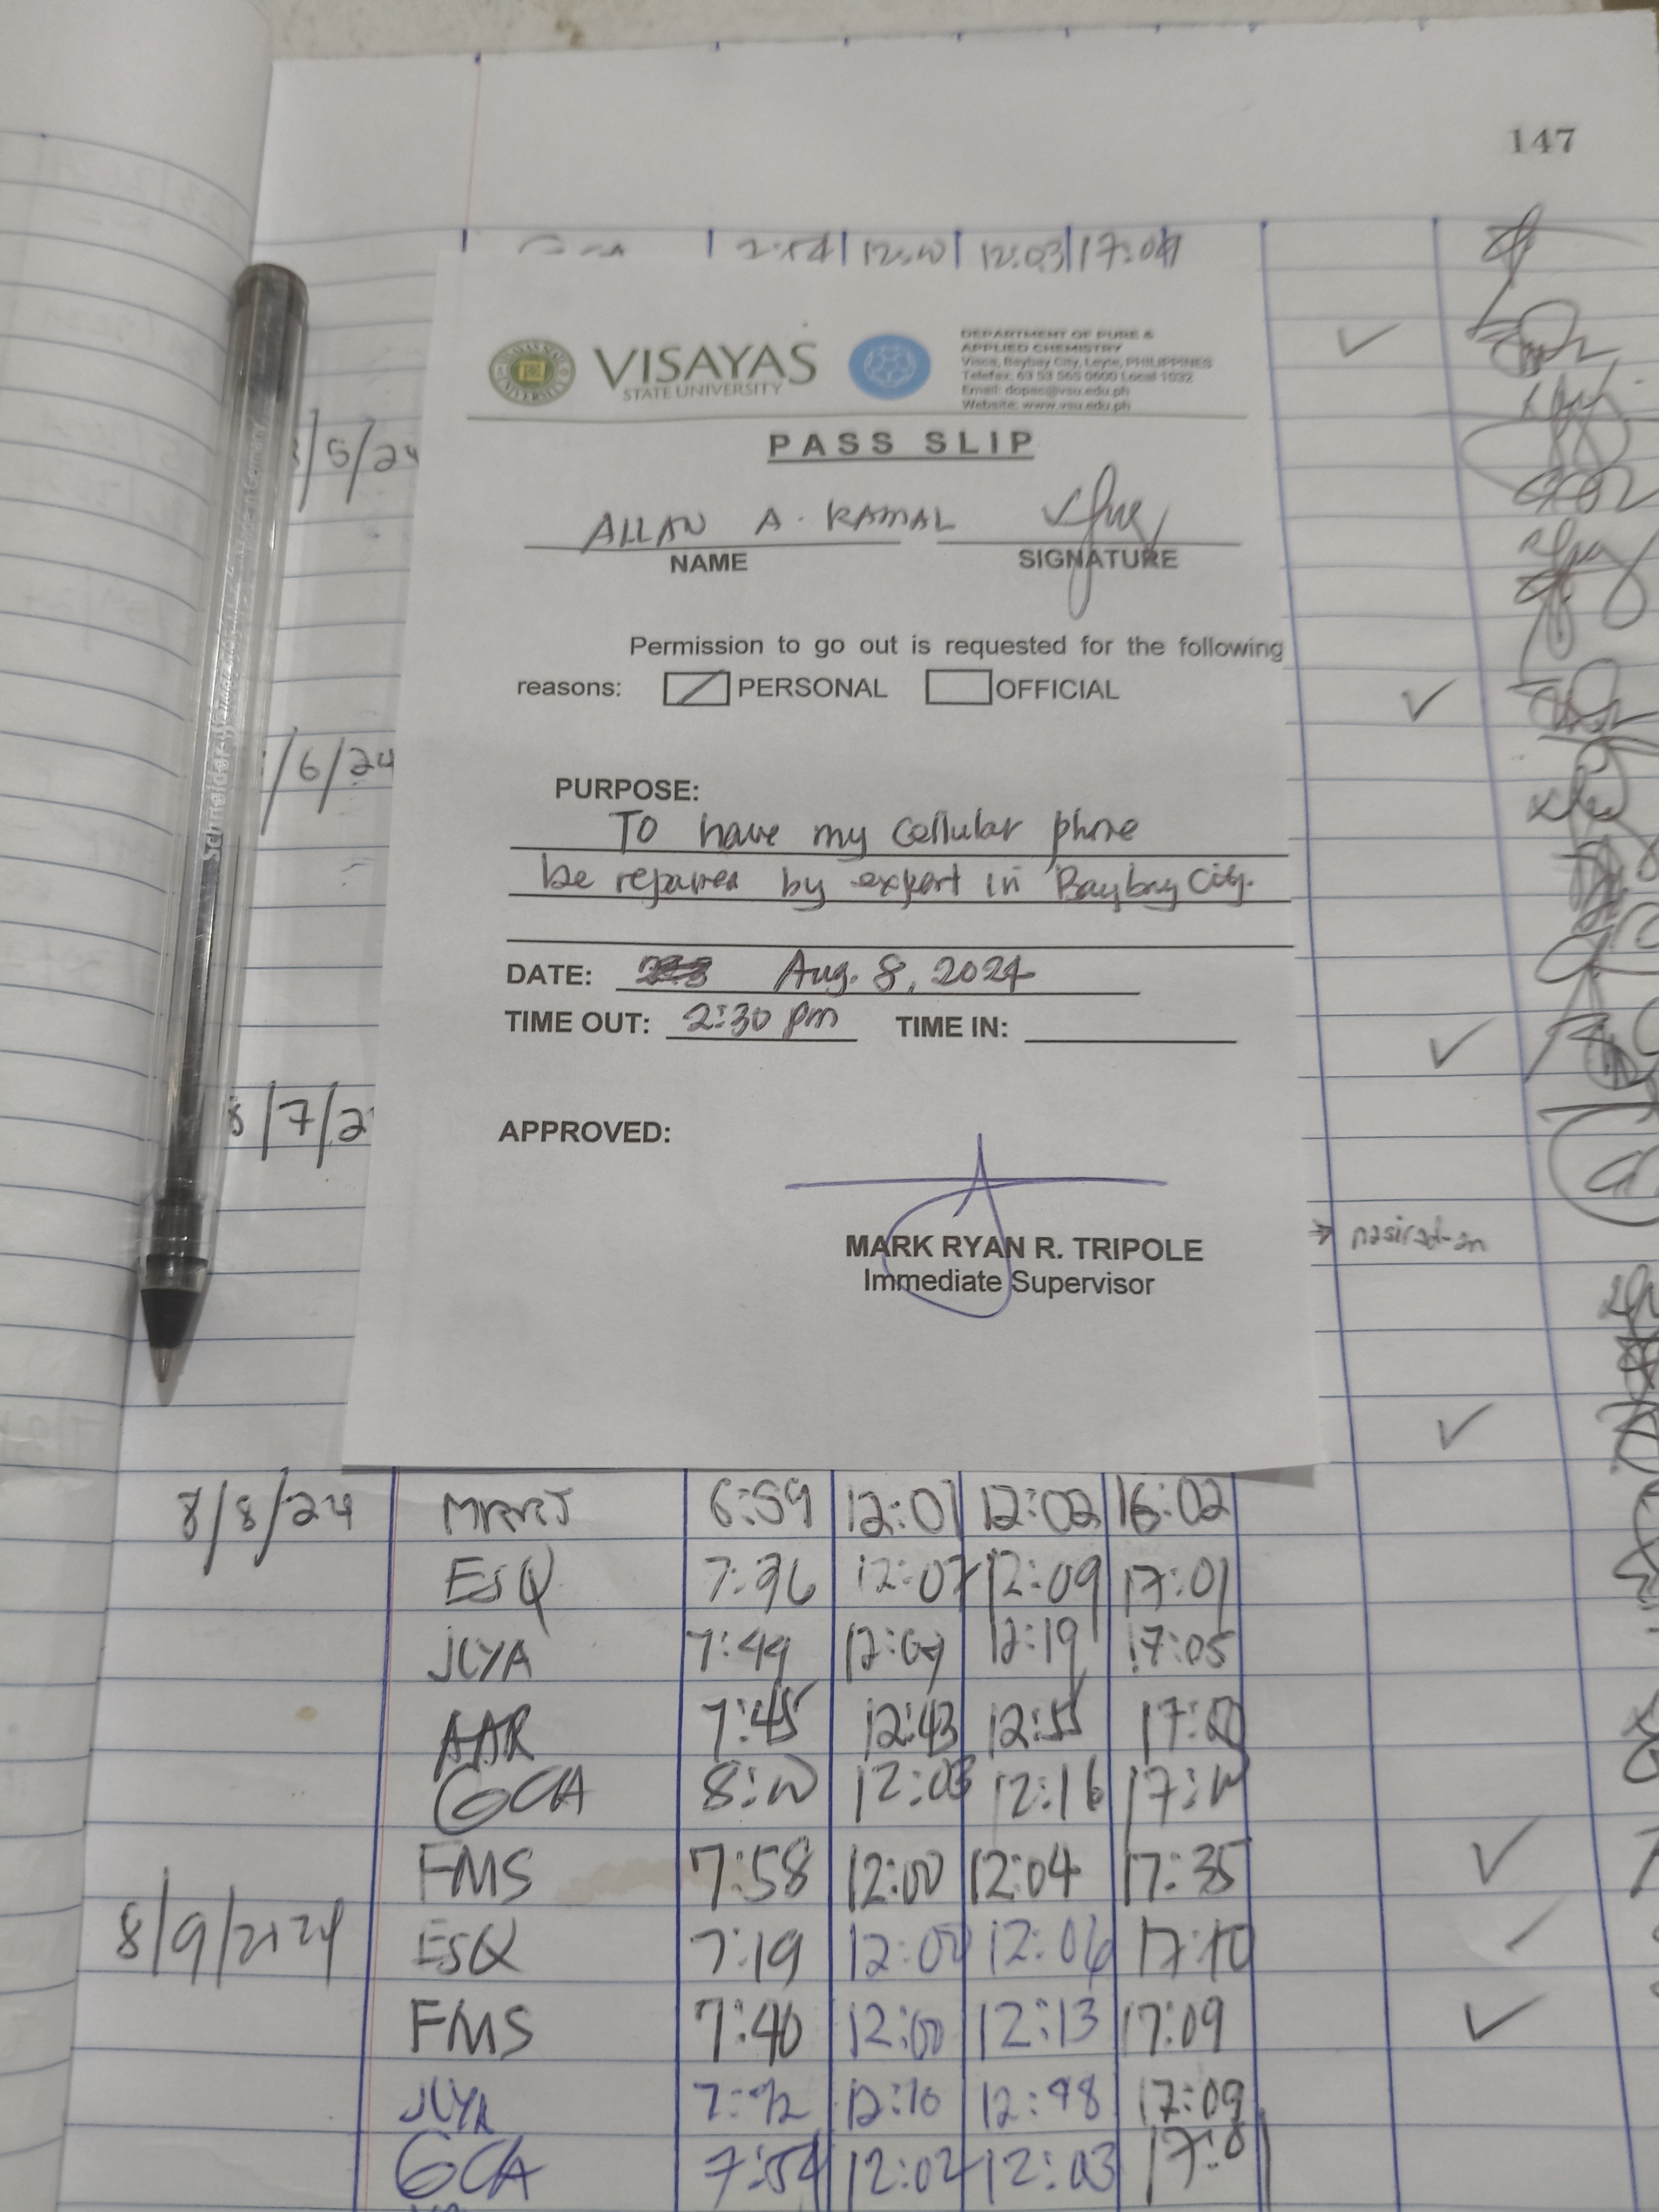 147
12:03 17:09
VISAYAS
STATE UNIVERSITY
DEPARTMENT OF PURE &
APPLIED CHEMISTRY
Visca, Baybay City, Leyte, PHILIPPINES
Telefax: 63 53 565 0600 Local 1032
Email: dopac@vsu.edu.ph
Website: www.vsu.edu.ph
PASS SLIP
ALLAN A. RAMAL
NAME SIGNATURE
/5/24
Permission to go out is requested for the following
reasons: PERSONAL OFFICIAL
/6/24
PURPOSE:
To have my cellular phone
be repaired by expert in Baybay City.
DATE: Aug. 8, 2024
TIME OUT: 2:30 pm TIME IN:
8/7/2
APPROVED:
MARK RYAN R. TRIPOLE
Immediate Supervisor
Schneider
8/8/24 MRRT 6:59 12:01 12:02 16:02
ESQ 7:36 12:07 12:09 17:01
JLYA 7:49 12:09 12:19 17:05
AAR 7:45 12:43 12:55
GCA 8:00 12:03 12:16
FMS 7:58 12:00 12:04 17:35
8/9/2024 ESQ 7:19 12:00 12:06 17:10
FMS 7:40 12:00 12:13 17:09
JLYA 12:10 12:48 17:09
GCA 7:54 12:02 12:03 17:01